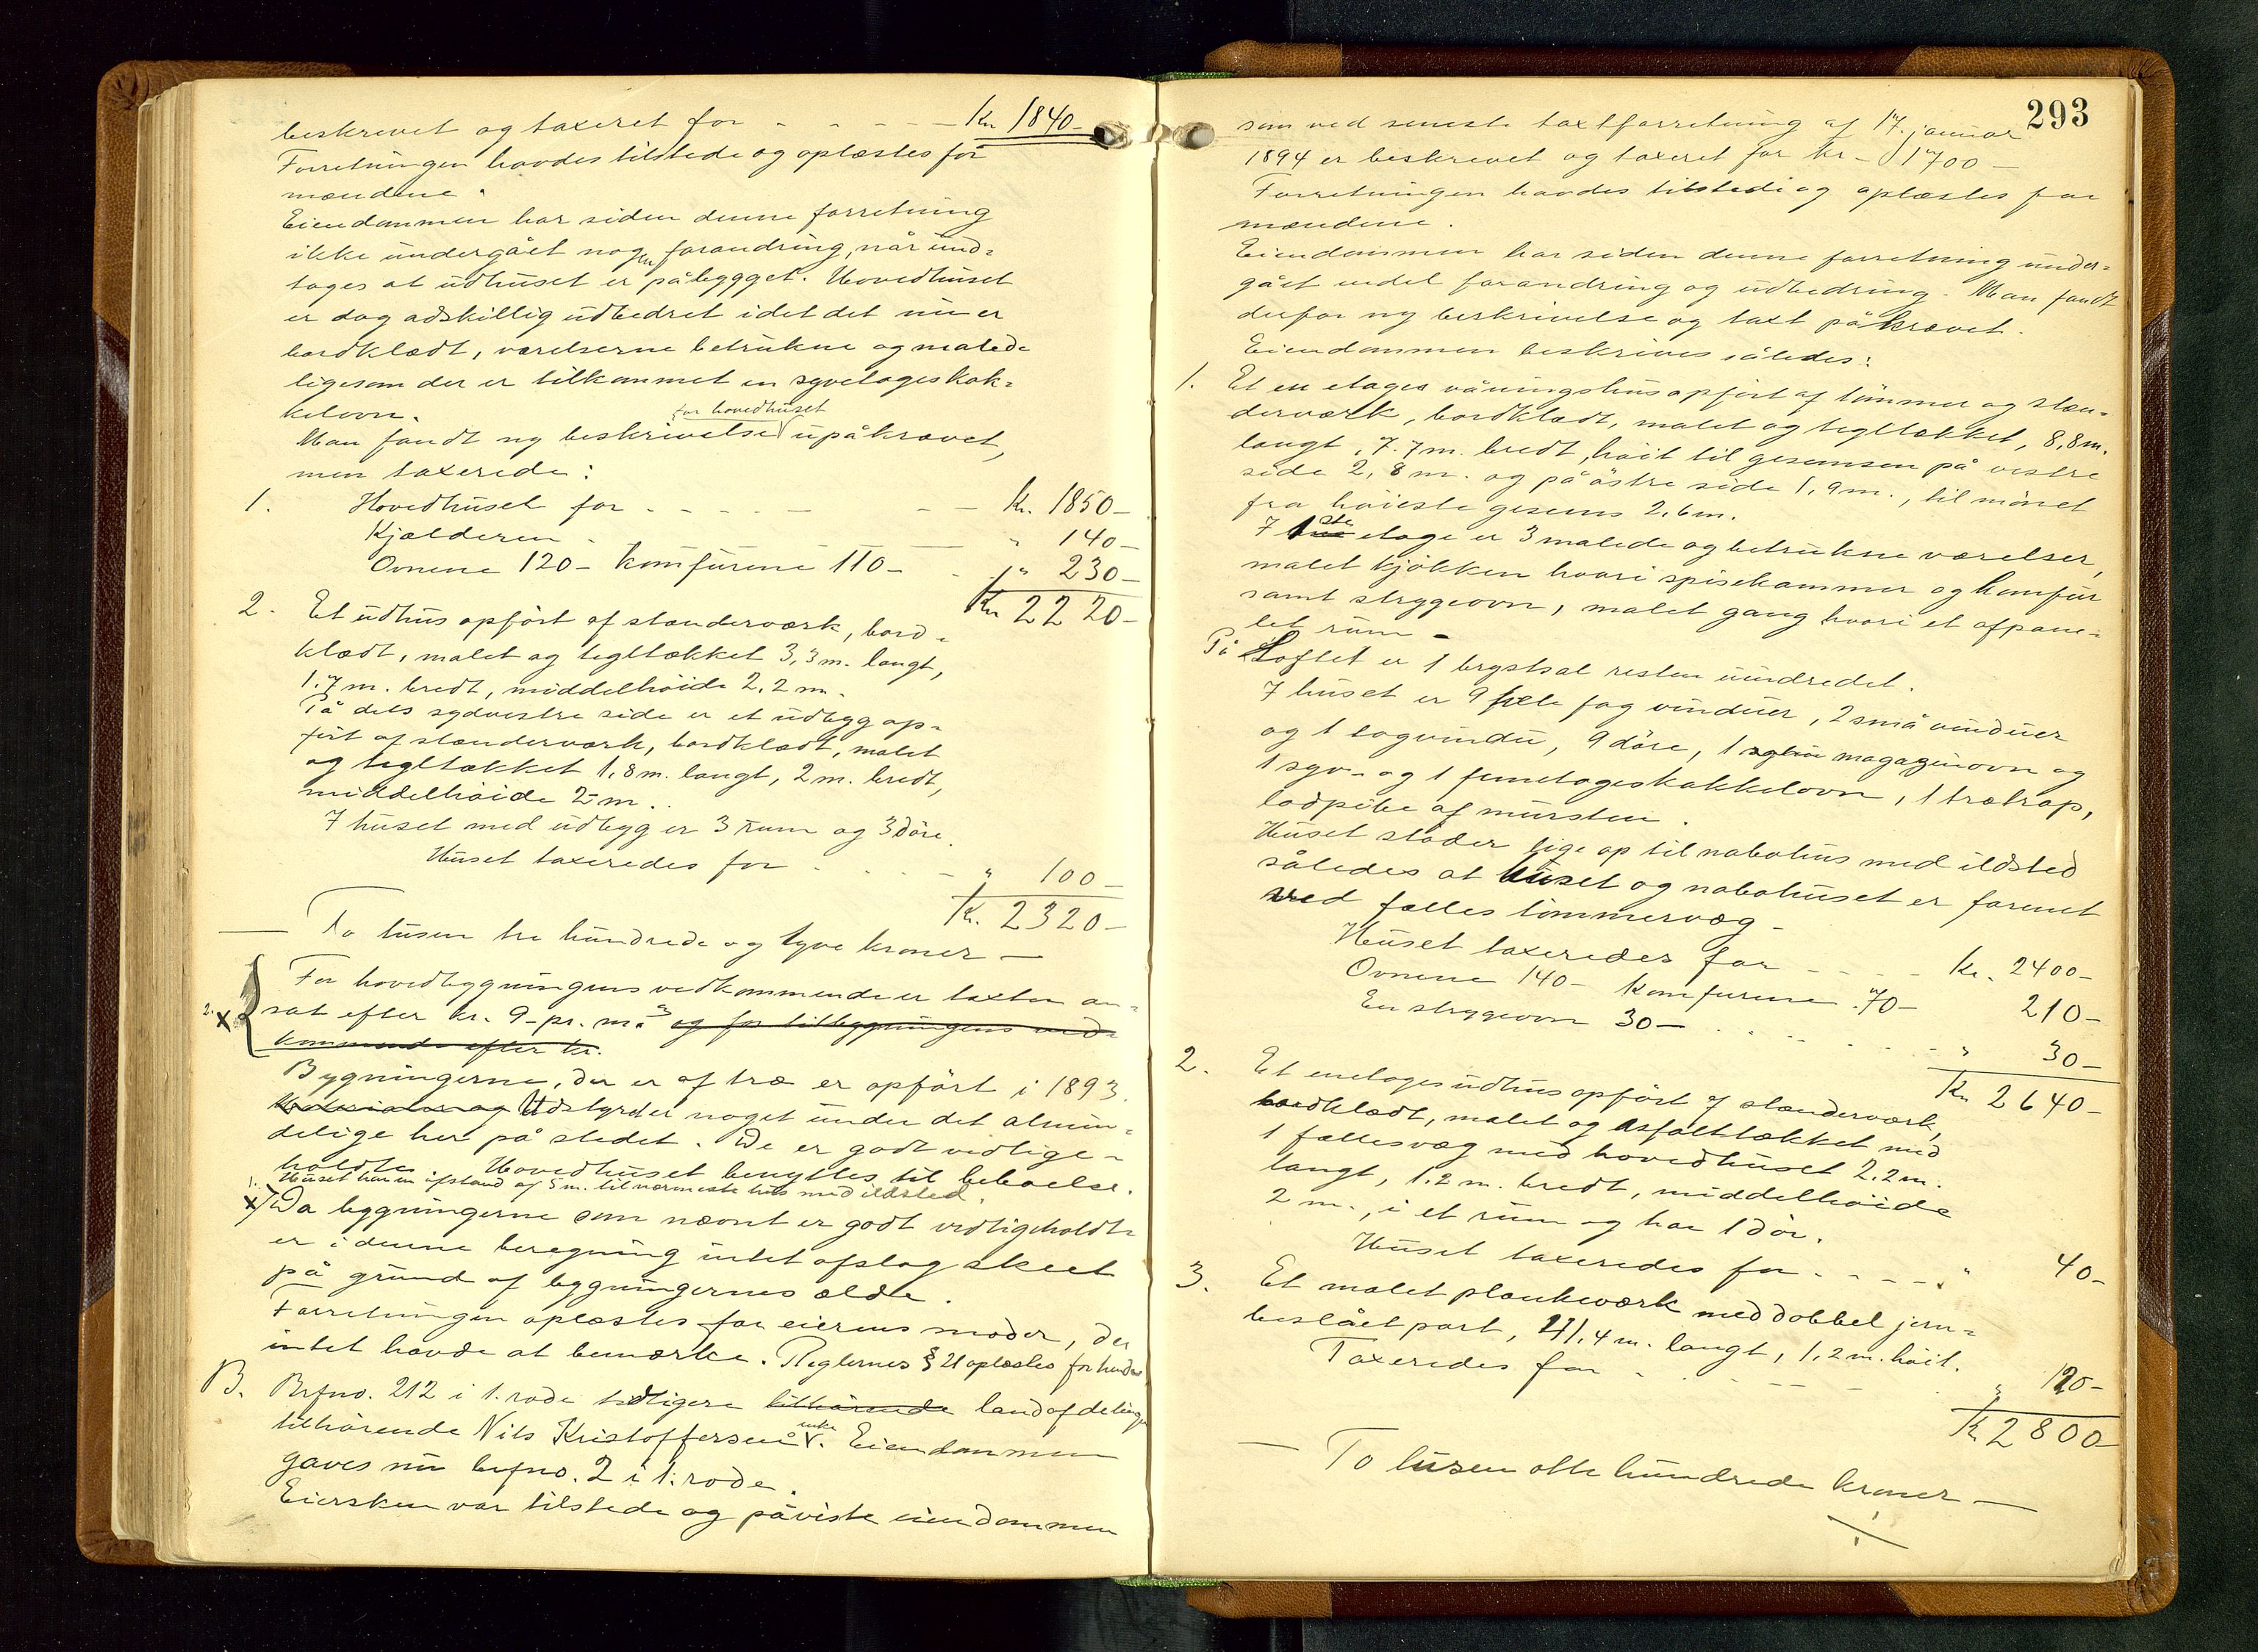 beskrevet og taxeret for - - - - - Kr. 1840-
Forretningen havdes tilstede og oplæstes for
mændene.
Eiendommen har siden denne forretning
ikke undergået nogen forandring, når und-
tages at udhuset er påbygget. Hovedhuset
er dog adskillig udbedret idet det nu er
bordklædt, værelserne betrukne og malede
ligesom der er tilkommet en syvetageskak-
kelovn.
for hovedhuset
Man fandt ny beskrivelse upåkrævet,
men taxerede:
1. Hovedhuset for - - - - - - - kr. 1850-
Kjælderen - - - " 140-
Ovnene 120- komfurene 110- " 230-
Kr. 2220-
2. Et udhus opført af stænderværk, bord-
klædt, malet og tegltækket 3,3 m. langt,
1.7 m. bredt, middelhøide 2,2 m.
På dets sydvestre side er et udbygg op-
ført af stænderværk, bordklædt, malet
og tegltækket 1,8 m. langt, 2 m. bredt,
middelhøide 2 m.
I huset med udbyg er 3 rum og 3 døre.
Huset taxeredes for - - - - " 100-
Kr. 2320-
— To tusen tre hundrede og tyve kroner —
For hovedbygningens vedkommende er taxten an-
2. x sat efter kr. 9- pr. m.³ og for tilbygningens ved-
kommende efter kr.
Bygningerne, der er af træ er opført i 1893.
Materialer og Udstyret er noget under det almin-
delige her på stedet. De er godt vedlige-
holdte. Hovedhuset benyttes til beboelse.
1. Huset har en afstand af 5 m. til nærmeste hus med ildsted.
x) Da bygningerne som nævnt er godt vedligeholdte
er i denne beregning intet afslag skeet
på grund af bygningernes ælde.
Forretningen oplæstes for eierens moder, der
intet havde at bemærke. Reglernes § 21 oplæstes for hende.
B. Brfno. 212 i 1. rode tidligere tilhørende landafdelingen
tilhørende Nils Kristoffersens enke. Eiendommen
gaves nu brfno. 2 i 1. rode.
Eiersken var tilstede og påviste eiendommen
293
som ved seneste taxtforretning af 17. januar
1894 er beskrevet og taxeret for kr. 1700-
Forretningen havdes tilstede og oplæstes for
mændene.
Eiendommen har siden denne forretning under-
gået endel forandring og udbedring. Man fandt
derfor ny beskrivelse og taxt påkrævet.
Eiendommen beskrives således:
1. Et en etages våningshus opført af tømmer og stæn-
derværk, bordklædt, malet og tegltækket, 8,8 m.
langt, 7.7 m. bredt, høit til gesimsen på vestre
side 2,8 m. og på østre side 1,9 m., til mønet
fra høieste gesims 2.6 m.
I 1ste etage er 3 malede og betrukne værelser,
malet kjøkken hvori spisekammer og komfur
samt strygeovn, malet gang hvori et afpane-
let rum -
På Loftet er 1 brystsal resten uindredet.
I huset er 9 hele fag vinduer, 2 små vinduer
og 1 tagvindu, 9 døre, 1 magazinovn og
1 syv- og 1 femetageskakkelovn, 1 trætrap,
lodpibe af mursten.
Huset støder lige op til nabohus med ildsted
således at huset og nabohuset er forenet
ved fælles tømmervæg -
Huset taxeredes for - - - - Kr. 2400-
Ovnene 140- komfurene 70- 210-
En strygeovn 30- - - - - - " 30-
Kr. 2640-
2. Et enetages udhus opført af stænderværk,
bordklædt, malet og asfalttækket med
1 fællesvæg med hovedhuset 2.2 m.
langt, 1.2 m. bredt, middelhøide
2 m., i et rum og har 1 dør.
Huset taxeredes for - - - - " 40-
3. Et malet plankeværk med dobbel jern-
beslået port, 41.4 m. langt, 1,2 m. høit.
Taxeredes for - - - - " 120-
Kr. 2800
— To tusen otte hundrede kroner —